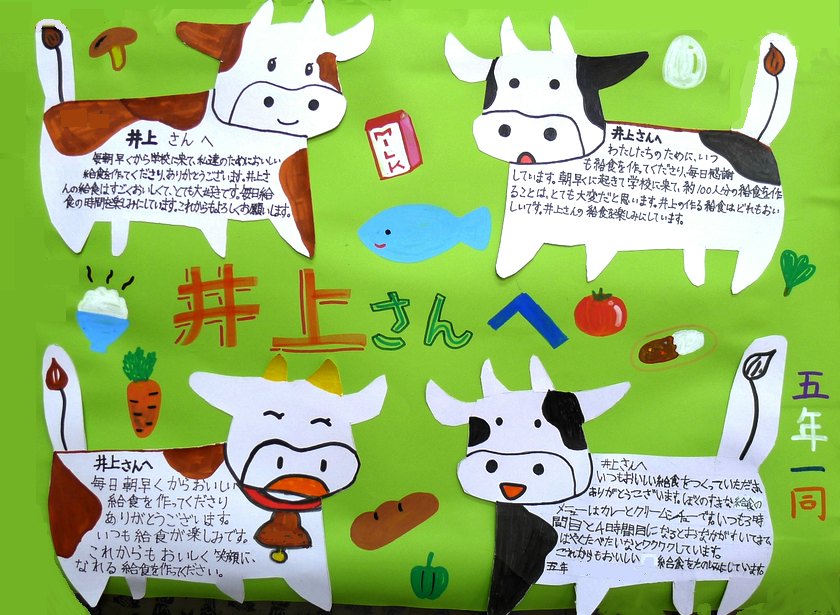 井上 さんへ
毎朝早くから学校に来て、私達のためにおいしい
給食を作ってくださり、ありがとうございます。井上さ
んの給食はすごくおいしくて、とても大好きです。毎日給
食の時間を楽しみにしています。これからもよろしくお願います。
MILK
井上さんへ
わたしたちのために、いつ
も給食を作ってくださり、毎日感謝
しています。朝早くに起きて学校に来て、約100人分の給食を作
ることは、とても大変だと思います。井上の作る給食はどれもおい
しいです。井上さんの給食を楽しみにしています。
井上さんへ
井上さんへ
毎日朝早くからおいしい
給食を作ってくださり
ありがとうございます。
いつも給食が楽しみです。
これからもおいしく笑顔に、
なれる給食を作ってください。
井上さんへ
いつもおいしい給食をつくっていただき、
ありがとうございます。ぼくのすきな給食の
メニューはカレーとクリームシチューです。いつも3時
間目と4時間目になるとおなかがすいてきて
はやくたべたいなとワクワクしています。
これからもおいしい 給食をたのしみにしています。
五年
五年一同